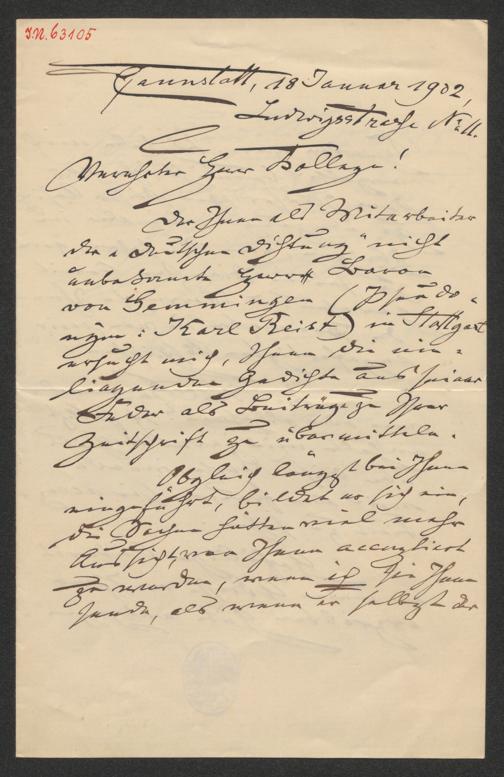 J.N. 63105
Cannstatt, 18 Januar 1902,
Ludwigsstrasse No 11.
Verehrter Herr Kollege!
Der Ihnen als Mitarbeiter
der „Deutschen Dichtung" nicht
unbekannte Herr Baron
von Gemmingen (Pseudo-
nym: Karl Reist) in Stuttgart
ersucht mich, Ihnen die ein-
liegenden Gedichte aus seiner
Feder als Beiträge zu Ihrer
Zeitschrift zu übermitteln.
Obgleich längst bei Ihnen
eingeführt, bildet er sich ein,
die Sachen hätten viel mehr
Aussicht, von Ihnen acceptiert
zu werden, wenn ich sie Ihnen
sende, als wenn er selbst der